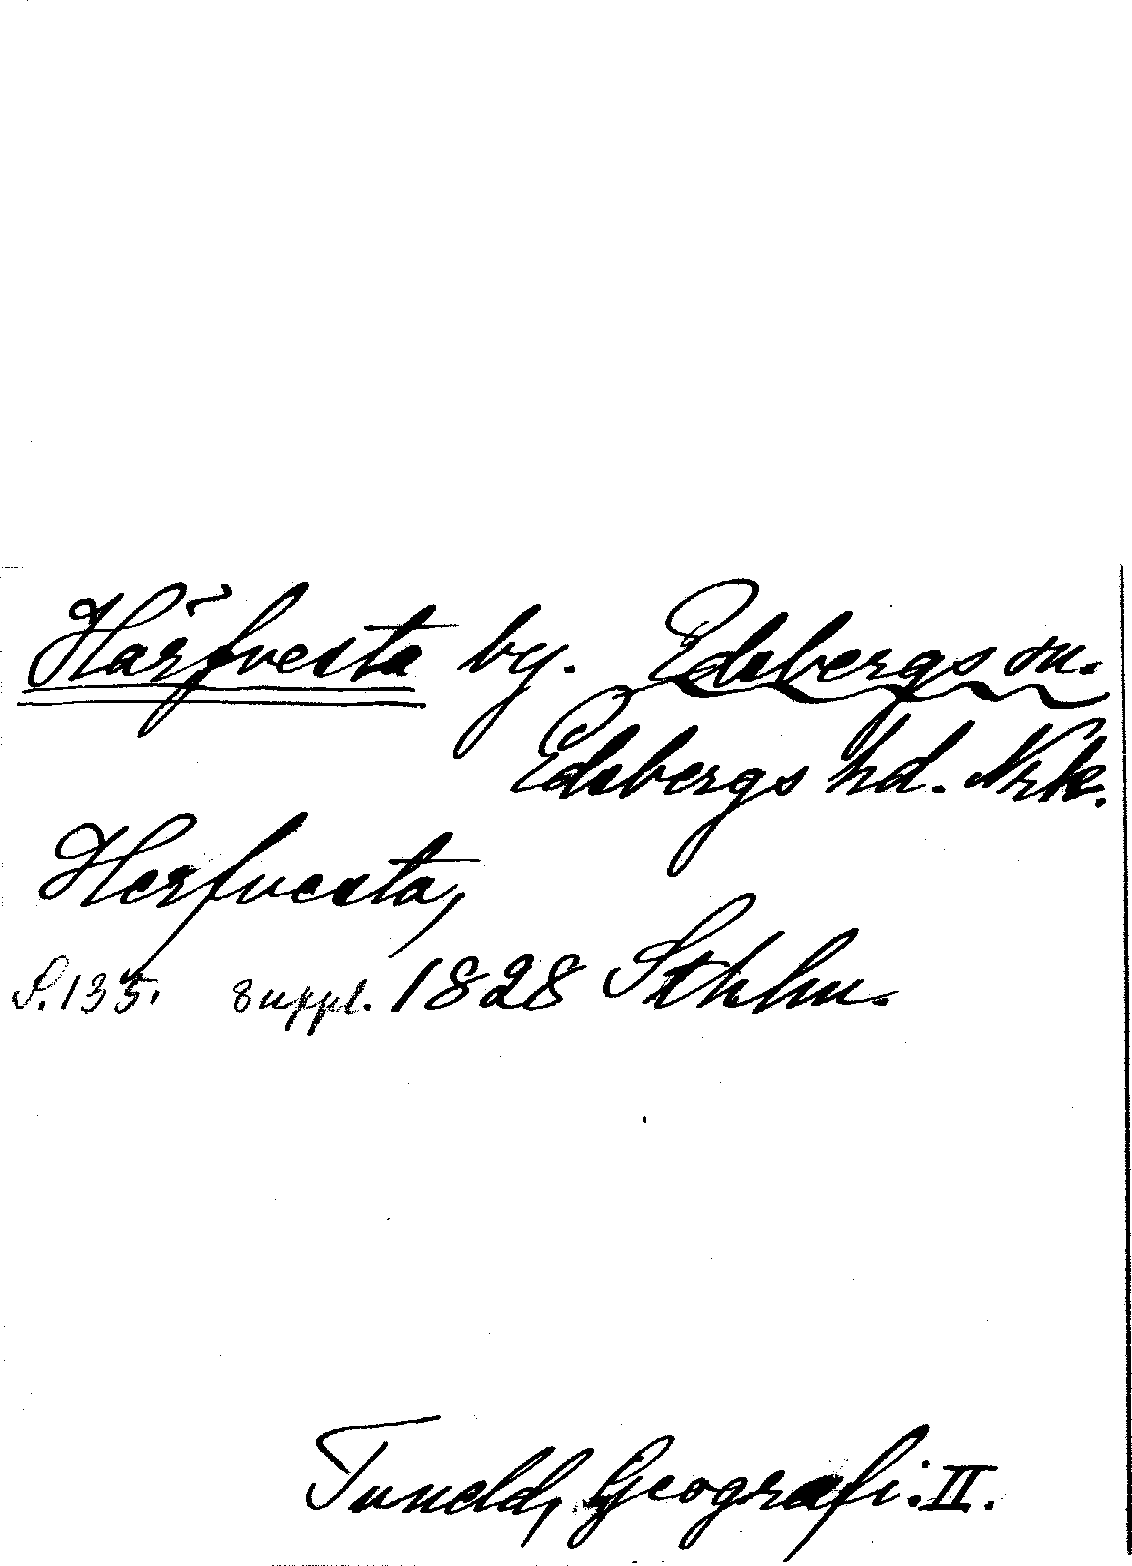 Härfvesta by. Edsbergs sn.
Edsbergs hd. Nrk.
Herfvesta,
S. 135. suppl. 1828 Sthlm.
Tuneld, Geografi. II.